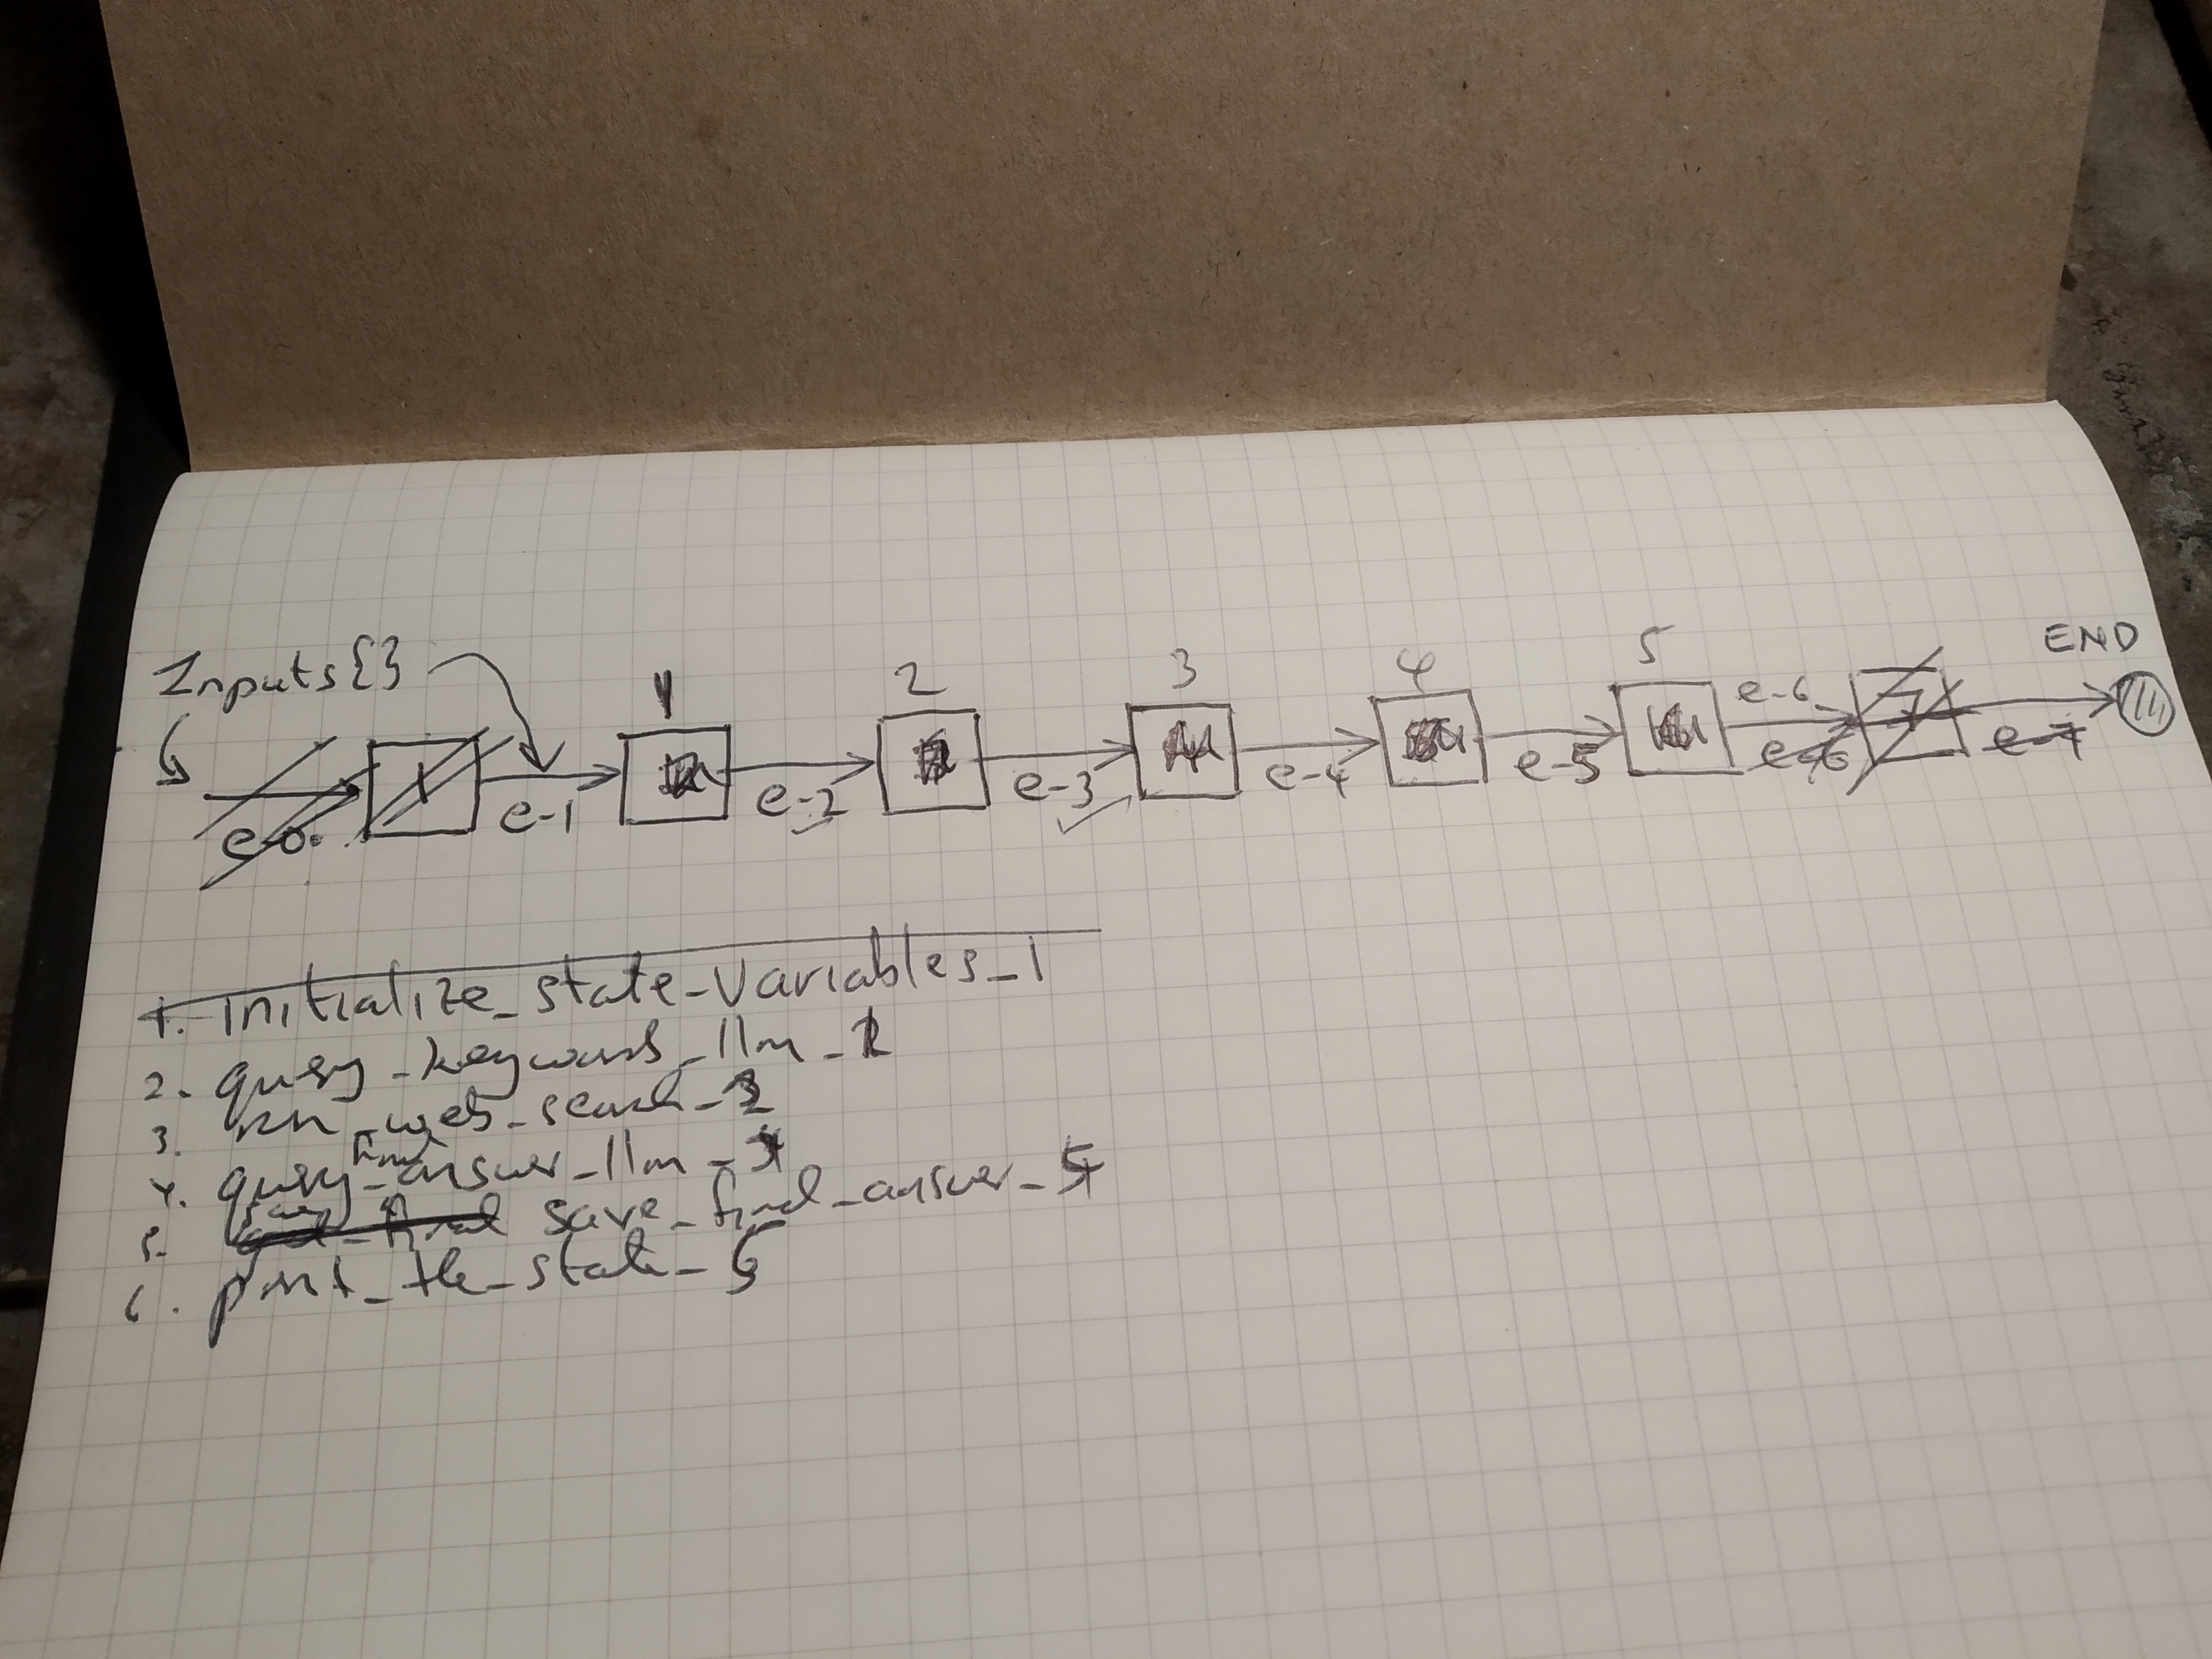 Inputs{} 1 2 3 4 5 END
e-0. 1 e-1 e-2 e-3 e-4 e-5 e-6 e-6 7 e-7
1. initialize_state_variables_1
2. query_keywords_llm_1
3. run_web_search_2
final
4. query_answer_llm_3
5. final save_final_answer_4
6. print_the_state_5